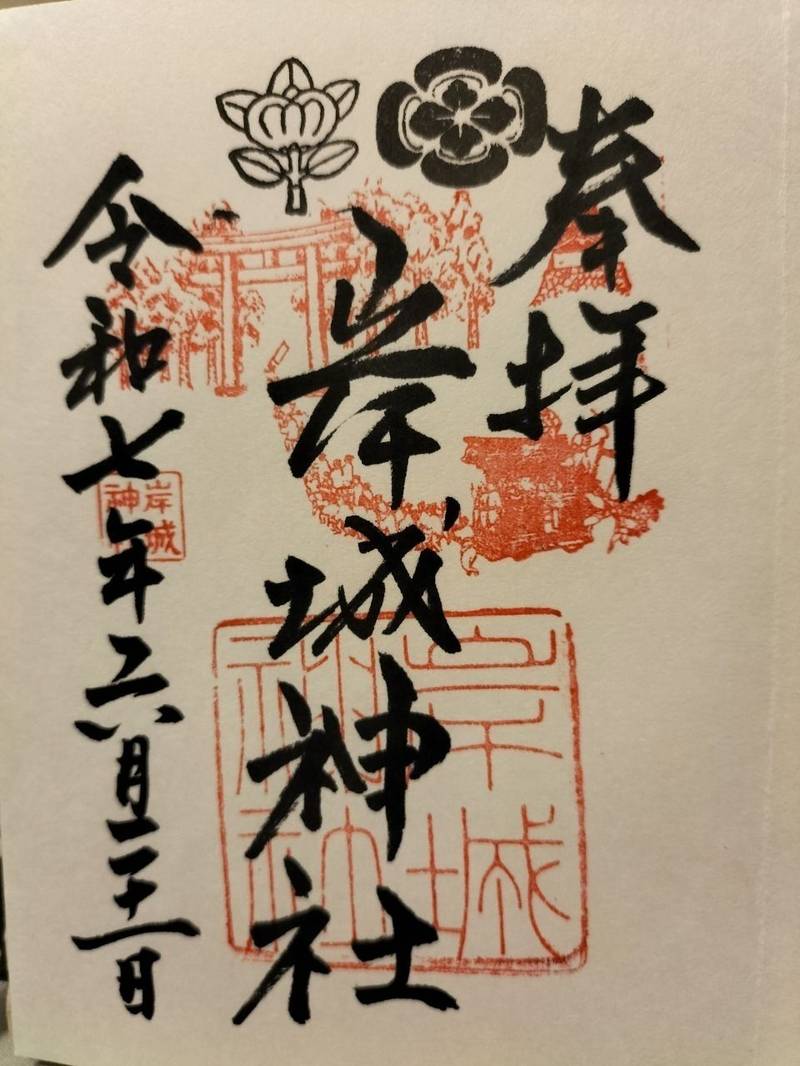 奉拝
岸城神社
令和七年六月二十一日
岸城神社